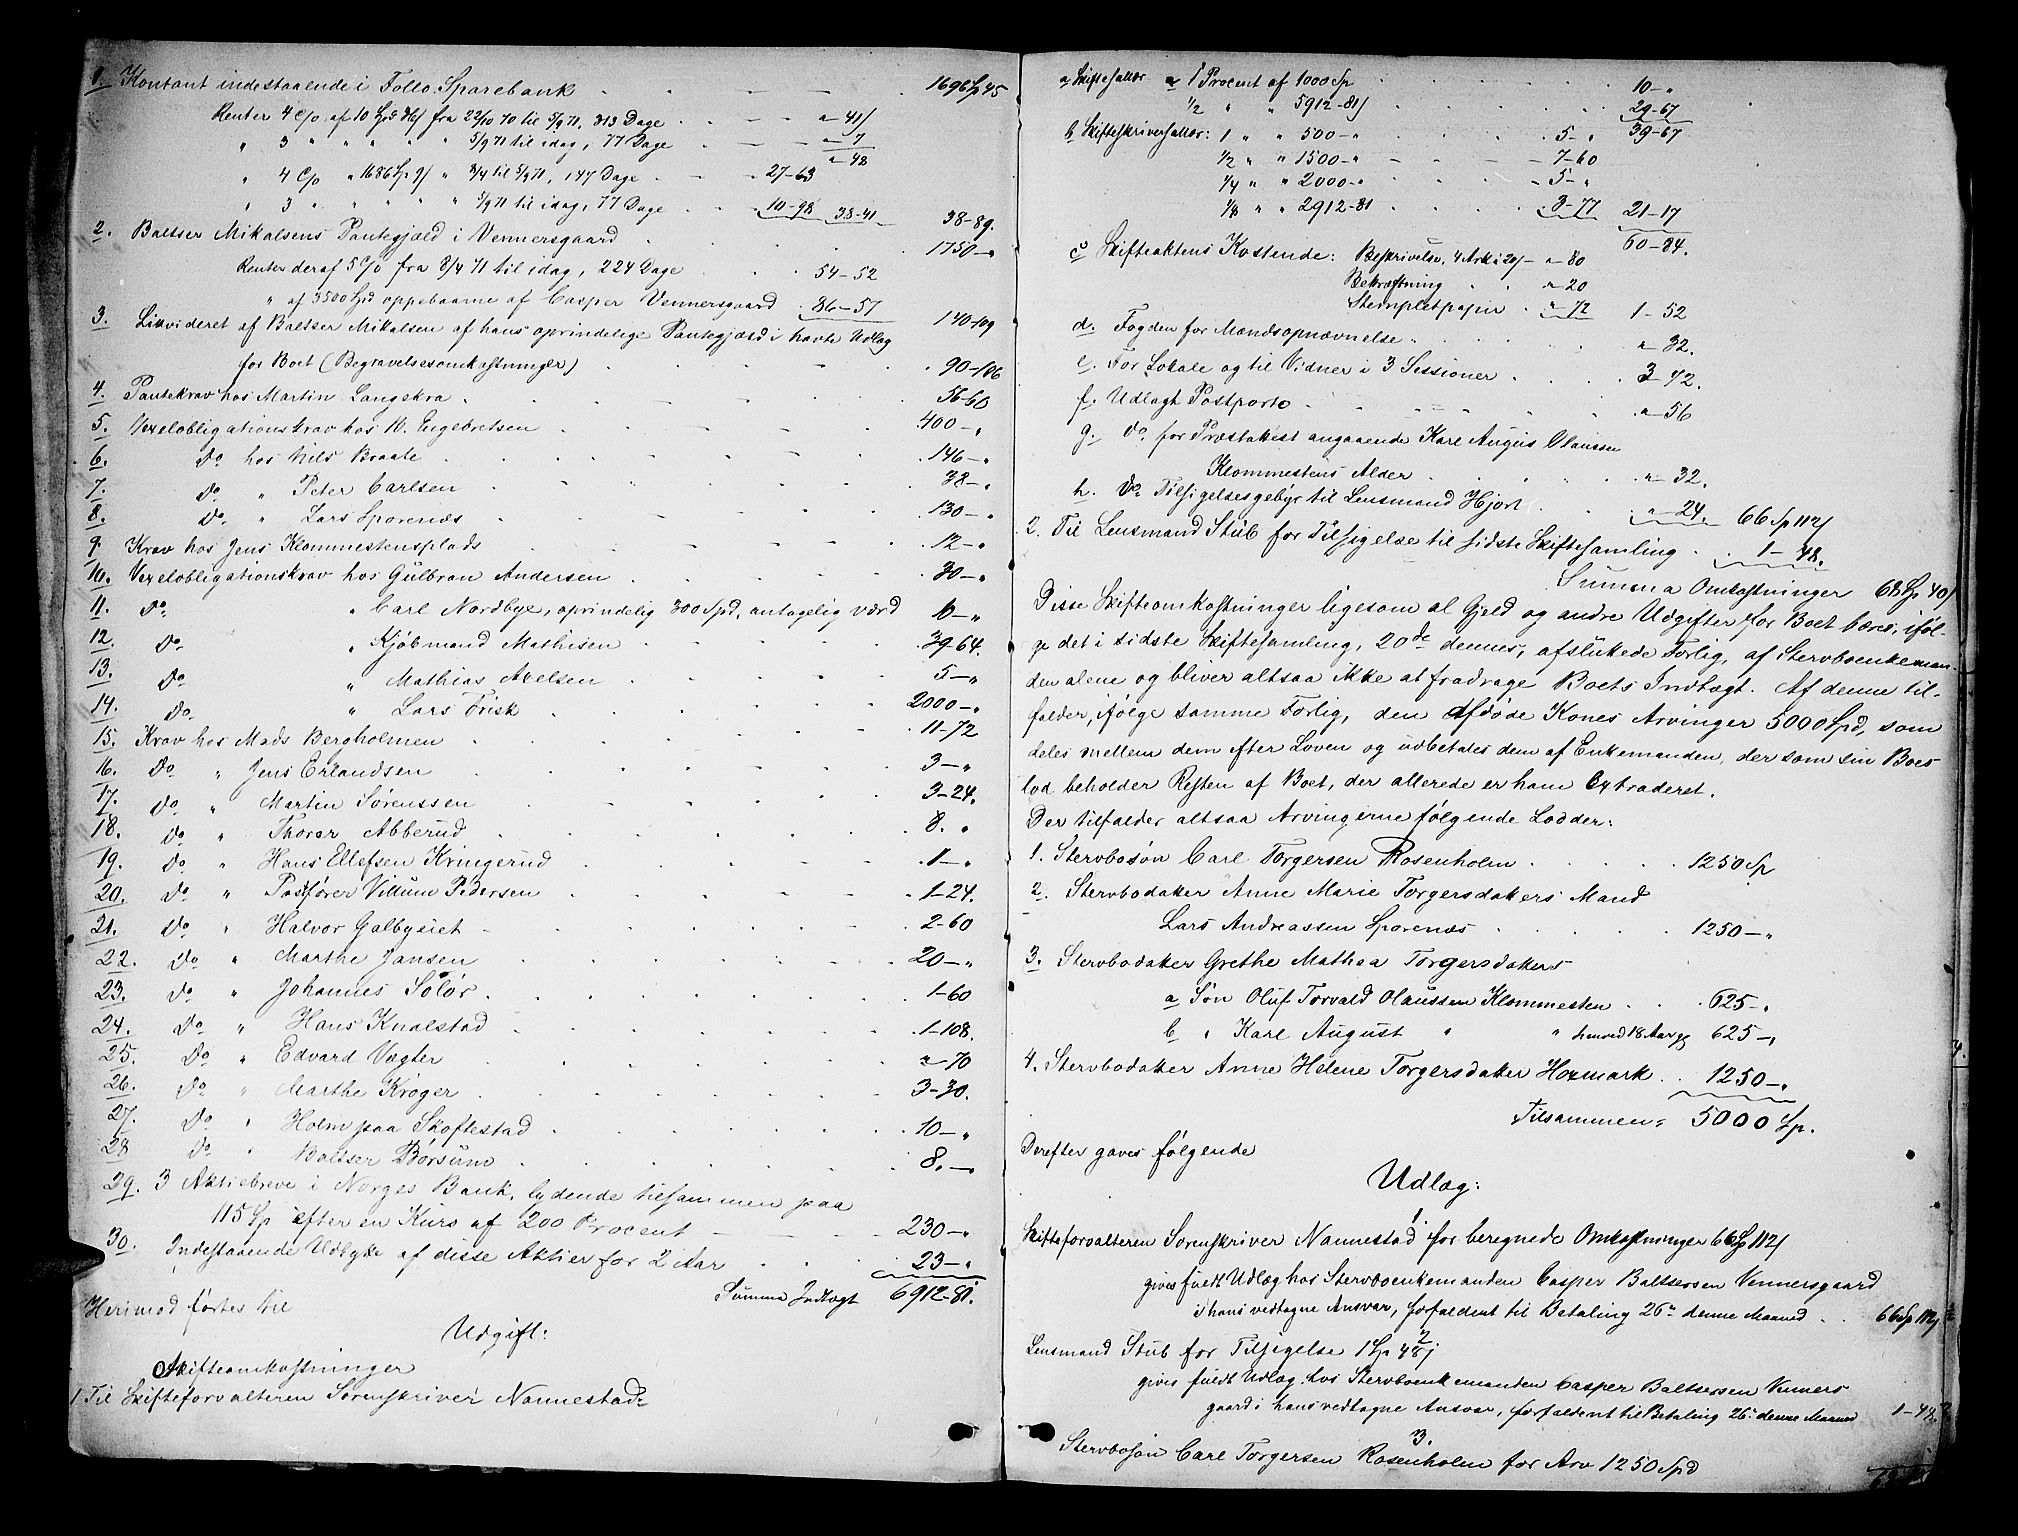 1. Kontant indestaaende i Follo Sparebank . . . 1696 Sp 45
Renter 4 C/o af 10 Spd 36/ fra 22/10 70 til 5/9 71, 313 Dage . . „ 41/
„ 3 „ „ „ „ „ 5/9 71 til idag, 77 Dage . . „ 7
„ 48
„ 4 C/o „ 1686 Sp 9/ „ 8/4 til 5/9 71, 147 Dage . . 27-63
„ 3 „ „ „ „ „ 5/9 71 til idag, 77 Dage . . 10-98 38-41 38-89.
2. Baltser Mikalsens Pantegjæld i Vennersgaard . . 1750-„
Renter deraf 5 C/o fra 8/4 71 til idag, 224 Dage . . 54-52
„ af 3500 Spd oppebaarne af Casper Vennersgaard . 86-57 140-109
3. Likvideret af Baltser Mikalsen af hans oprindelige Pantegjæld i havte Udlæg
for Boet (Begravelsesomkostninger) . . 90-106
4. Pantekrav hos Martin Langekra . . 56-60
5. Vexelobligationskrav hos N. Engebretsen . . 400-„
6. Do hos Nils Braate . . 146-„
7. Do „ Peter Carlsen . . 38-„
8. Do „ Lars Sporenæs . . 130-„
9. Krav hos Jens Klommestensplads . . 12-„
10. Vexelobligationskrav hos Gulbran Andersen . . 30-„
11. Do „ Carl Nordbye, oprindelig 300 Spd, antagelig værd 6-„
12. Do „ Kjøbmand Mathisen . . 39-64.
13. Do „ Mathias Axelsen . . 5-„
14. Do „ Lars Frisk . . 2000-„
15. Krav hos Mads Bergholmen . . 11-72
16. Do „ Jens Erlandsen . . 3-„
17. Do „ Martin Sørenssen . . 3-24.
18. Do „ Thorer Abberud . . 8. „
19. Do „ Hans Ellefsen Kringerud . . 1-„
20. Do „ Postfører Villum Pedersen . . 1-24.
21. Do „ Halvor Galbysiet . . 2-60
22. Do „ Marthe Jansen . . 20-„
23. Do „ Johannes Solør . . 1-60
24. Do „ Hans Knalstad . . 1-108.
25. Do „ Edvard Vægter . . „-70
26. Do „ Marthe Krøger . . 3-30.
27. Do „ Holm paa Skoftestad . . 10-„
28 Do „ Baltser Børsum . . 8.-„
29. 3 Aktiebreve i Norges Bank, lydende tilsammen paa
115 Sp efter en Kurs af 200 Procent . . 230-„
30. Indestaaende Udbytte af disse Aktier for 2 Aar . . 23-„
Summa Indtægt 6912-81.
Herimod førtes til
Udgift:
Skifteomkostninger
1. Til Skifteforvalteren Sorenskriver Nannestad:
a Skiftesallær a 1 Procent af 1000 Sp . . 10-„
1/2 „ „ 5912-81/ . . 29-67
39-67
b Skifteskriversallær: 1 „ „ 500-„ . . 5-„
1/2 „ „ 1500-„ . . 7-60
1/4 „ „ 2000-„ . . 5-„
1/8 „ „ 2912-81 . . 3-77 21-17
60-84.
c Skifteaktens Kostende: Beskrivelse, 4 Ark à 20/ - „ 80
Bekræftning . . „ 20
Stemplet papir . „ 72 1-52
d. Fogden for Mændsopnævnelse . . „ 32.
e. For Lokale og til Vidner i 3 Sessioner . . 3-42.
f. Udlagt Postporto . . „-56
g. Do for Præstattest angaaende Karl Augus Olaussen
Klommestens Alder . . „ 32.
h. Do Tilsigelsesgebyr til Lensmand Hjort . . „ 24. 66 Sp 112/
2. Til Lensmand Stub for Tilsigelse til sidste Skiftesamling . . 1-48.
Summa Omkostninger 68 Sp 40/
Disse Skifteomkostninger ligesom al Gjeld og andre Udgifter for Boet bæres, iføl-
ge det i sidste Skiftesamling, 20de dennes, afsluttede Forlig, af Stervboenkeman-
den alene og bliver altsaa ikke at fradrage Boets Indtægt. Af denne til-
falder, ifølge samme Forlig, den afdøde Kones Arvinger 5000 Spd, som
deles mellem dem efter Loven og udbetales dem af Enkemanden, der som sin Boes-
lod beholder Resten af Boet, der allerede er ham Extraderet.
Der tilfalder altsaa Arvingerne følgende Lodder:
1. Stervbosøn Carl Torgersen Rosenholm . . 1250 Sp
2. Stervbodatter Anne Marie Torgersdatters Mand
Lars Andreassen Sporenæs . . 1250-„
3. Stervbodatter Grethe Mathea Torgersdatters
a Søn Oluf Torvald Olaussen Klommesten . . 625-„
b „ Karl August „ „ henved 18 Aar gl 625-„
4. Stervbodatter Anne Helene Torgersdatter Hoxmark . . 1250-„
Tilsammen = 5000 Sp.
Derefter gaves følgende
Udlæg:
1.
Skifteforvalteren Sorenskriver Nannestad for beregnede Omkostninger 66 Sp 112/
gives fuldt Udlæg hos Stervboenkemanden Casper Baltsersen Vennersgaard
i hans vedtagne Ansvar, forfaldent til Betaling 26de denne Maaned . . 66 Sp 112/
2
Lensmand Stub for Tilsigelse 1 Sp 48/
gives fuldt Udlæg hos Stervboenkemanden Casper Baltsersen Venners
gaard i hans vedtagne Ansvar, forfaldent til Betaling 26de denne Maaned 1-48.
3.
Stervbosøn Carl Torgersen Rosenholm for Arv 1250 Spd